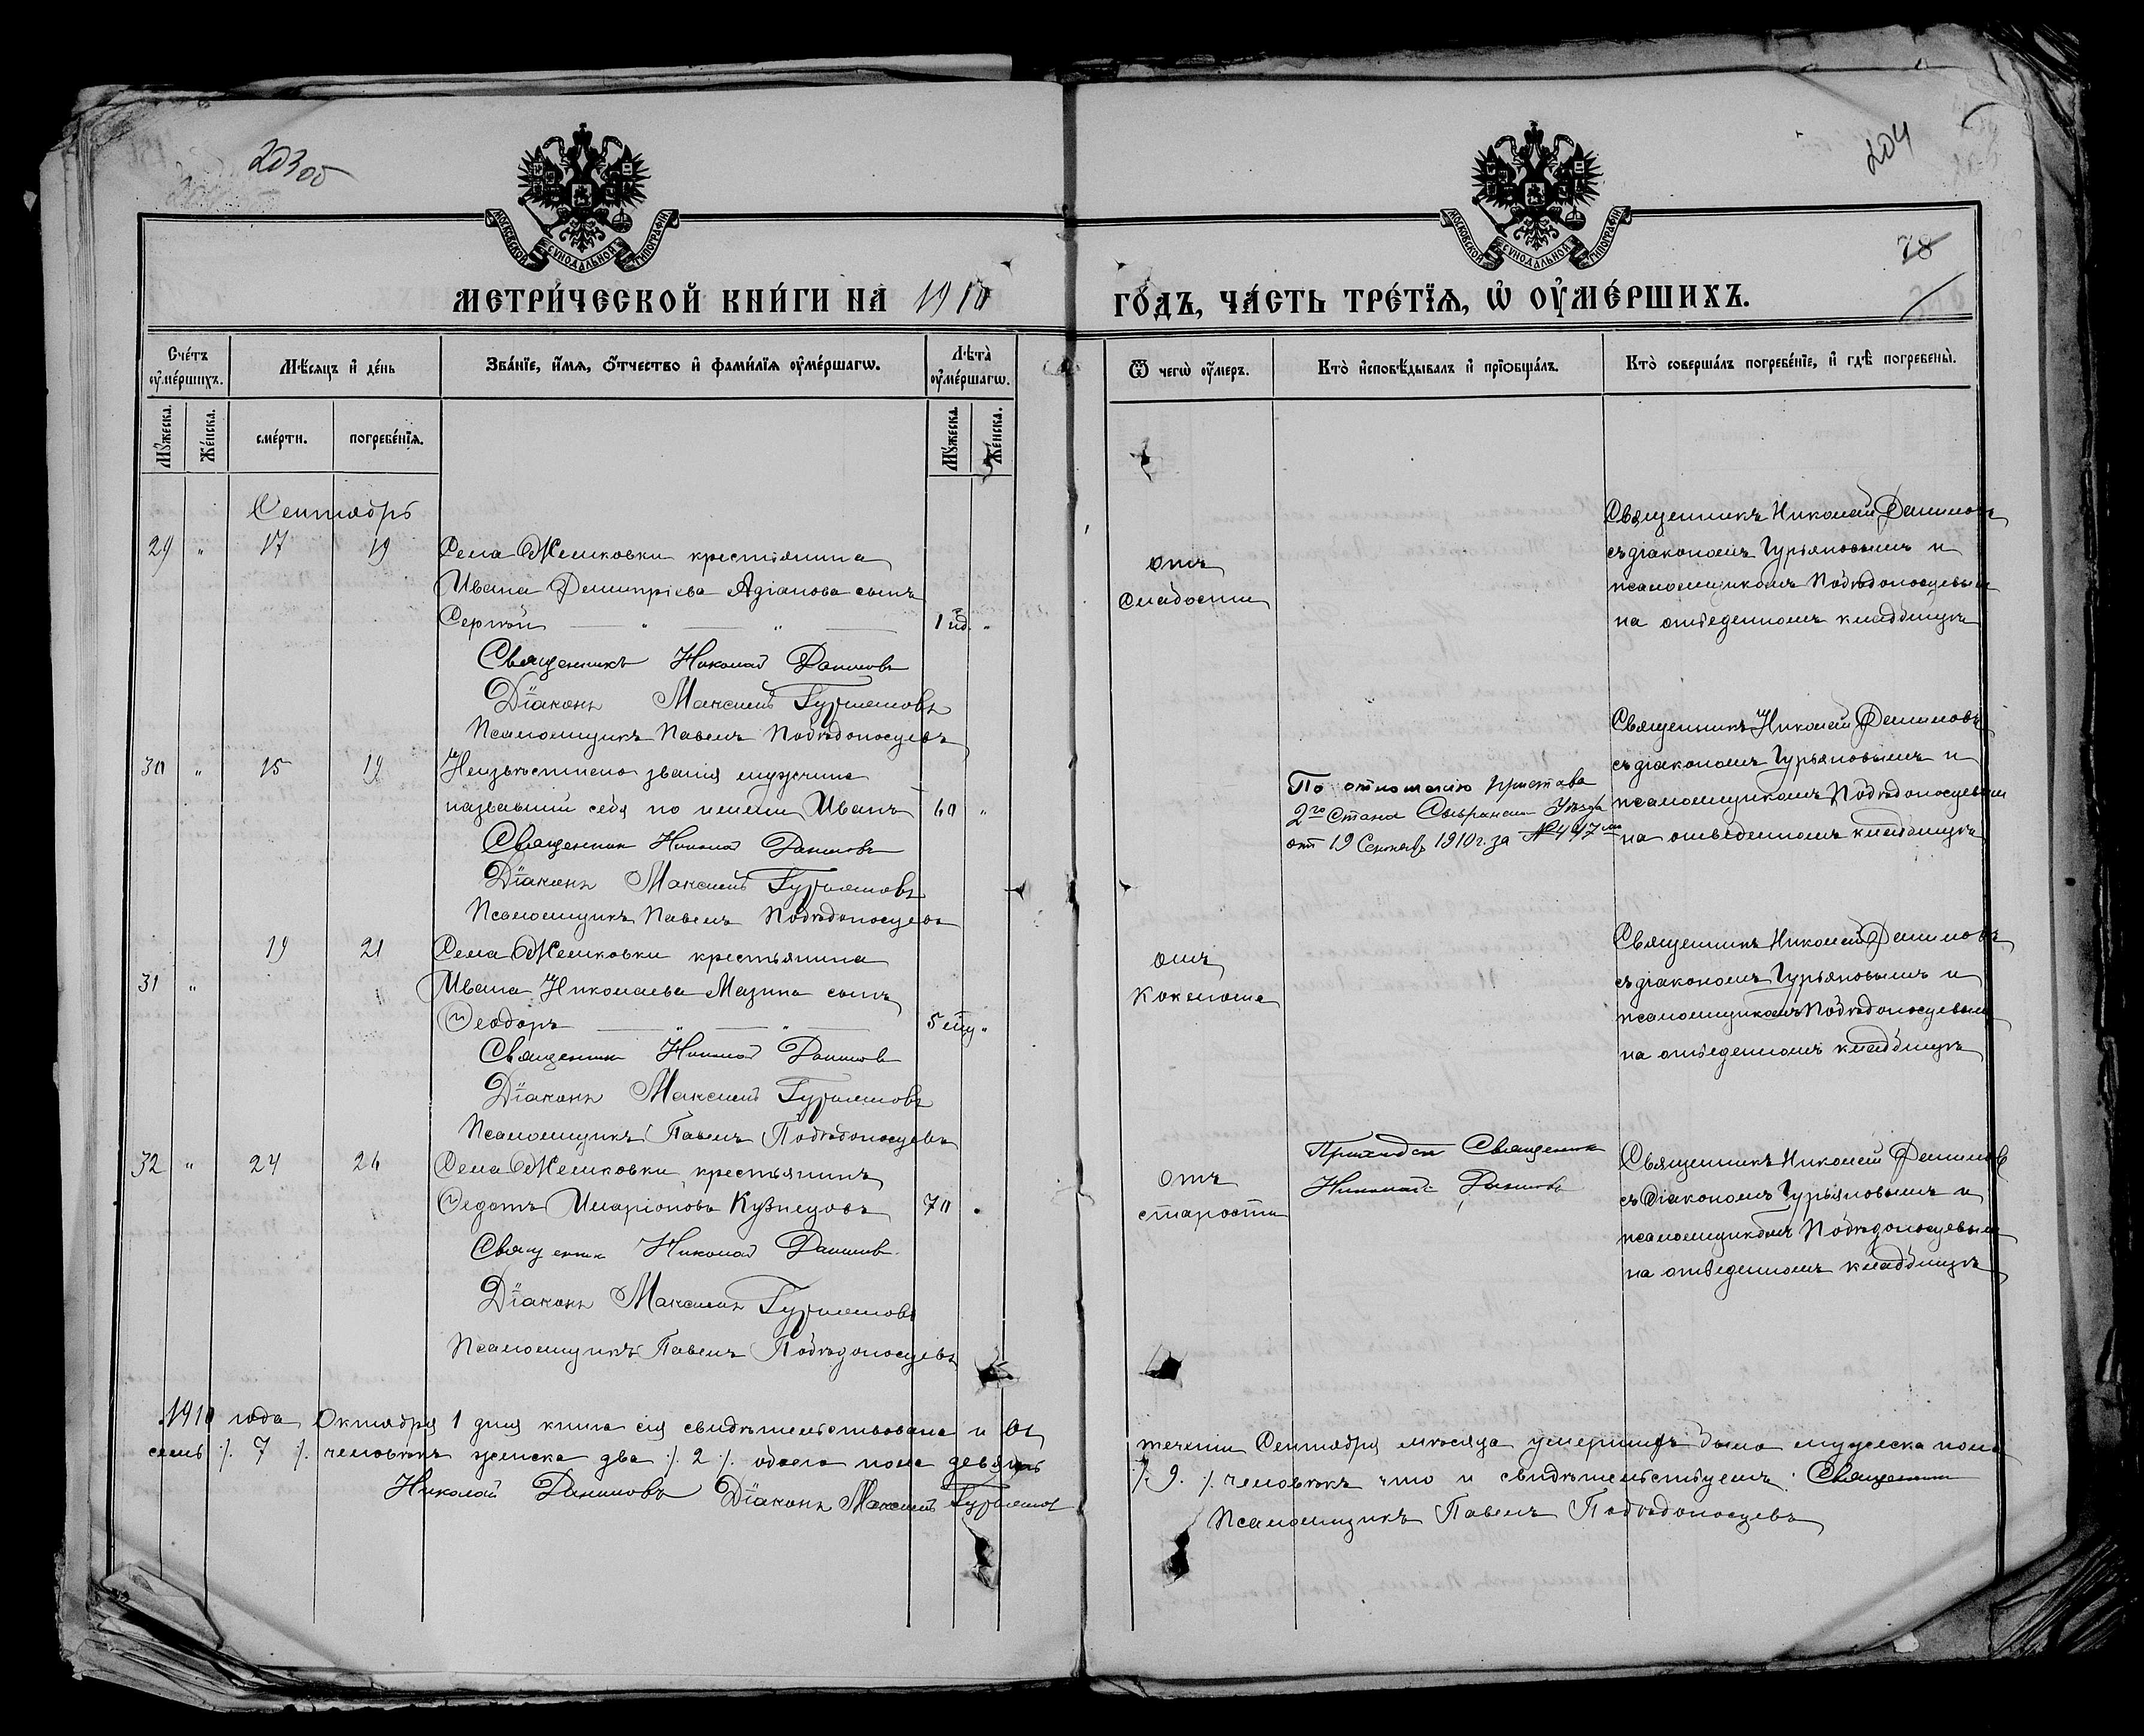 203 об
204
78
МОСКОВСКОЙ СѴНОДАЛЬНОЙ ТИПОГРАФІИ
МОСКОВСКОЙ СѴНОДАЛЬНОЙ ТИПОГРАФІИ
МЕТРИ́ЧЕСКОЙ КНИ́ГИ НА 1910
ГО́ДЪ, ЧА́СТЬ ТРЕ́ТЇѦ, Ѡ҆ ОУ҆МЕ́РШИХЪ.
Сче́тъ оу҆ме́ршихъ.
Мѣ́сяцъ и҆ де́нь
Зва́нїе, и҆́мѧ, ѻ҆́тчество и҆ фами́лїѧ оу҆ме́ршагѡ.
Лѣ́та оу҆ме́ршагѡ.
Ѿ чегѡ̀ оу҆́меръ.
Кто̀ и҆сповѣ́дывалъ и҆ прїѡбща́лъ.
Кто̀ соверша́лъ погребе́нїе, и҆ гдѣ̀ погребены̀.
Мꙋ́жеска.
Же́нска.
сме́рти.
погребе́нїѧ.
Мꙋ́жеска.
Же́нска.
Сентябрь
29 " 17 19 Села Жемковки крестьянина
Ивана Димитріева Адіанова сынъ
Сергѣй — " — " — 1 нд. "
Священникъ Николай Данилов
Діаконъ Максимъ Гурьяновъ
Псаломщикъ Павелъ Побѣдоносцевъ
отъ
слабости
Священникъ Николай Данилов
съ діакономъ Гурьяновымъ и
псаломщикомъ Побѣдоносцевым
на отведенномъ кладбищѣ
30 " 15 19 Неизвѣстнаго званія мужчина
назвавшій себя по имени Иванъ 60 "
Священник Николай Данилов
Діаконъ Максимъ Гурьяновъ
Псаломщикъ Павелъ Побѣдоносцевъ
По отношенію пристава
2го Стана Сызранскаго Уѣзда
от 19 Сентяб. 1910 г. за №447
Священникъ Николай Даниловъ
съ діакономъ Гурьяновымъ и
псаломщикомъ Побѣдоносцевым
на отведенномъ кладбищѣ
31 " 19 21 Села Жемковки крестьянина
Ивана Николаева Мазина сынъ
Ѳеодоръ — " — " — 5 "
Священник Николай Данилов
Діаконъ Максимъ Гурьяновъ
Псаломщикъ Павелъ Побѣдоносцевъ
отъ
коклюша
Священникъ Николай Данилов
съ діакономъ Гурьяновымъ и
псаломщикомъ Побѣдоносцевым
на отведенномъ кладбищѣ
32 " 24 26 Села Жемковки крестьянинъ
Ѳедотъ Иларіоновъ Кузнецовъ 70 "
Священник Николай Данилов
Діаконъ Максимъ Гурьяновъ
Псаломщикъ Павелъ Побѣдоносцевъ
отъ
старости
Приходск Священник
Николай Данилов
Священникъ Николай Данилов
съ Діакономъ Гурьяновымъ и
псаломщикомъ Побѣдоносцевым
на отведенномъ кладбищѣ
1910 года Октября 1 дня книга сія свидѣтельствована и въ
теченіи Сентября мѣсяца умершихъ было мужеска пола
семь ./. 7 ./. человѣкъ женска два ./. 2 ./. обоего пола девять
./. 9 ./. человѣкъ что и свидѣтельствуемъ: Священник
Николай Даниловъ Діаконъ Максимъ Гурьянов
Псаломщикъ Павелъ Побѣдоносцевъ